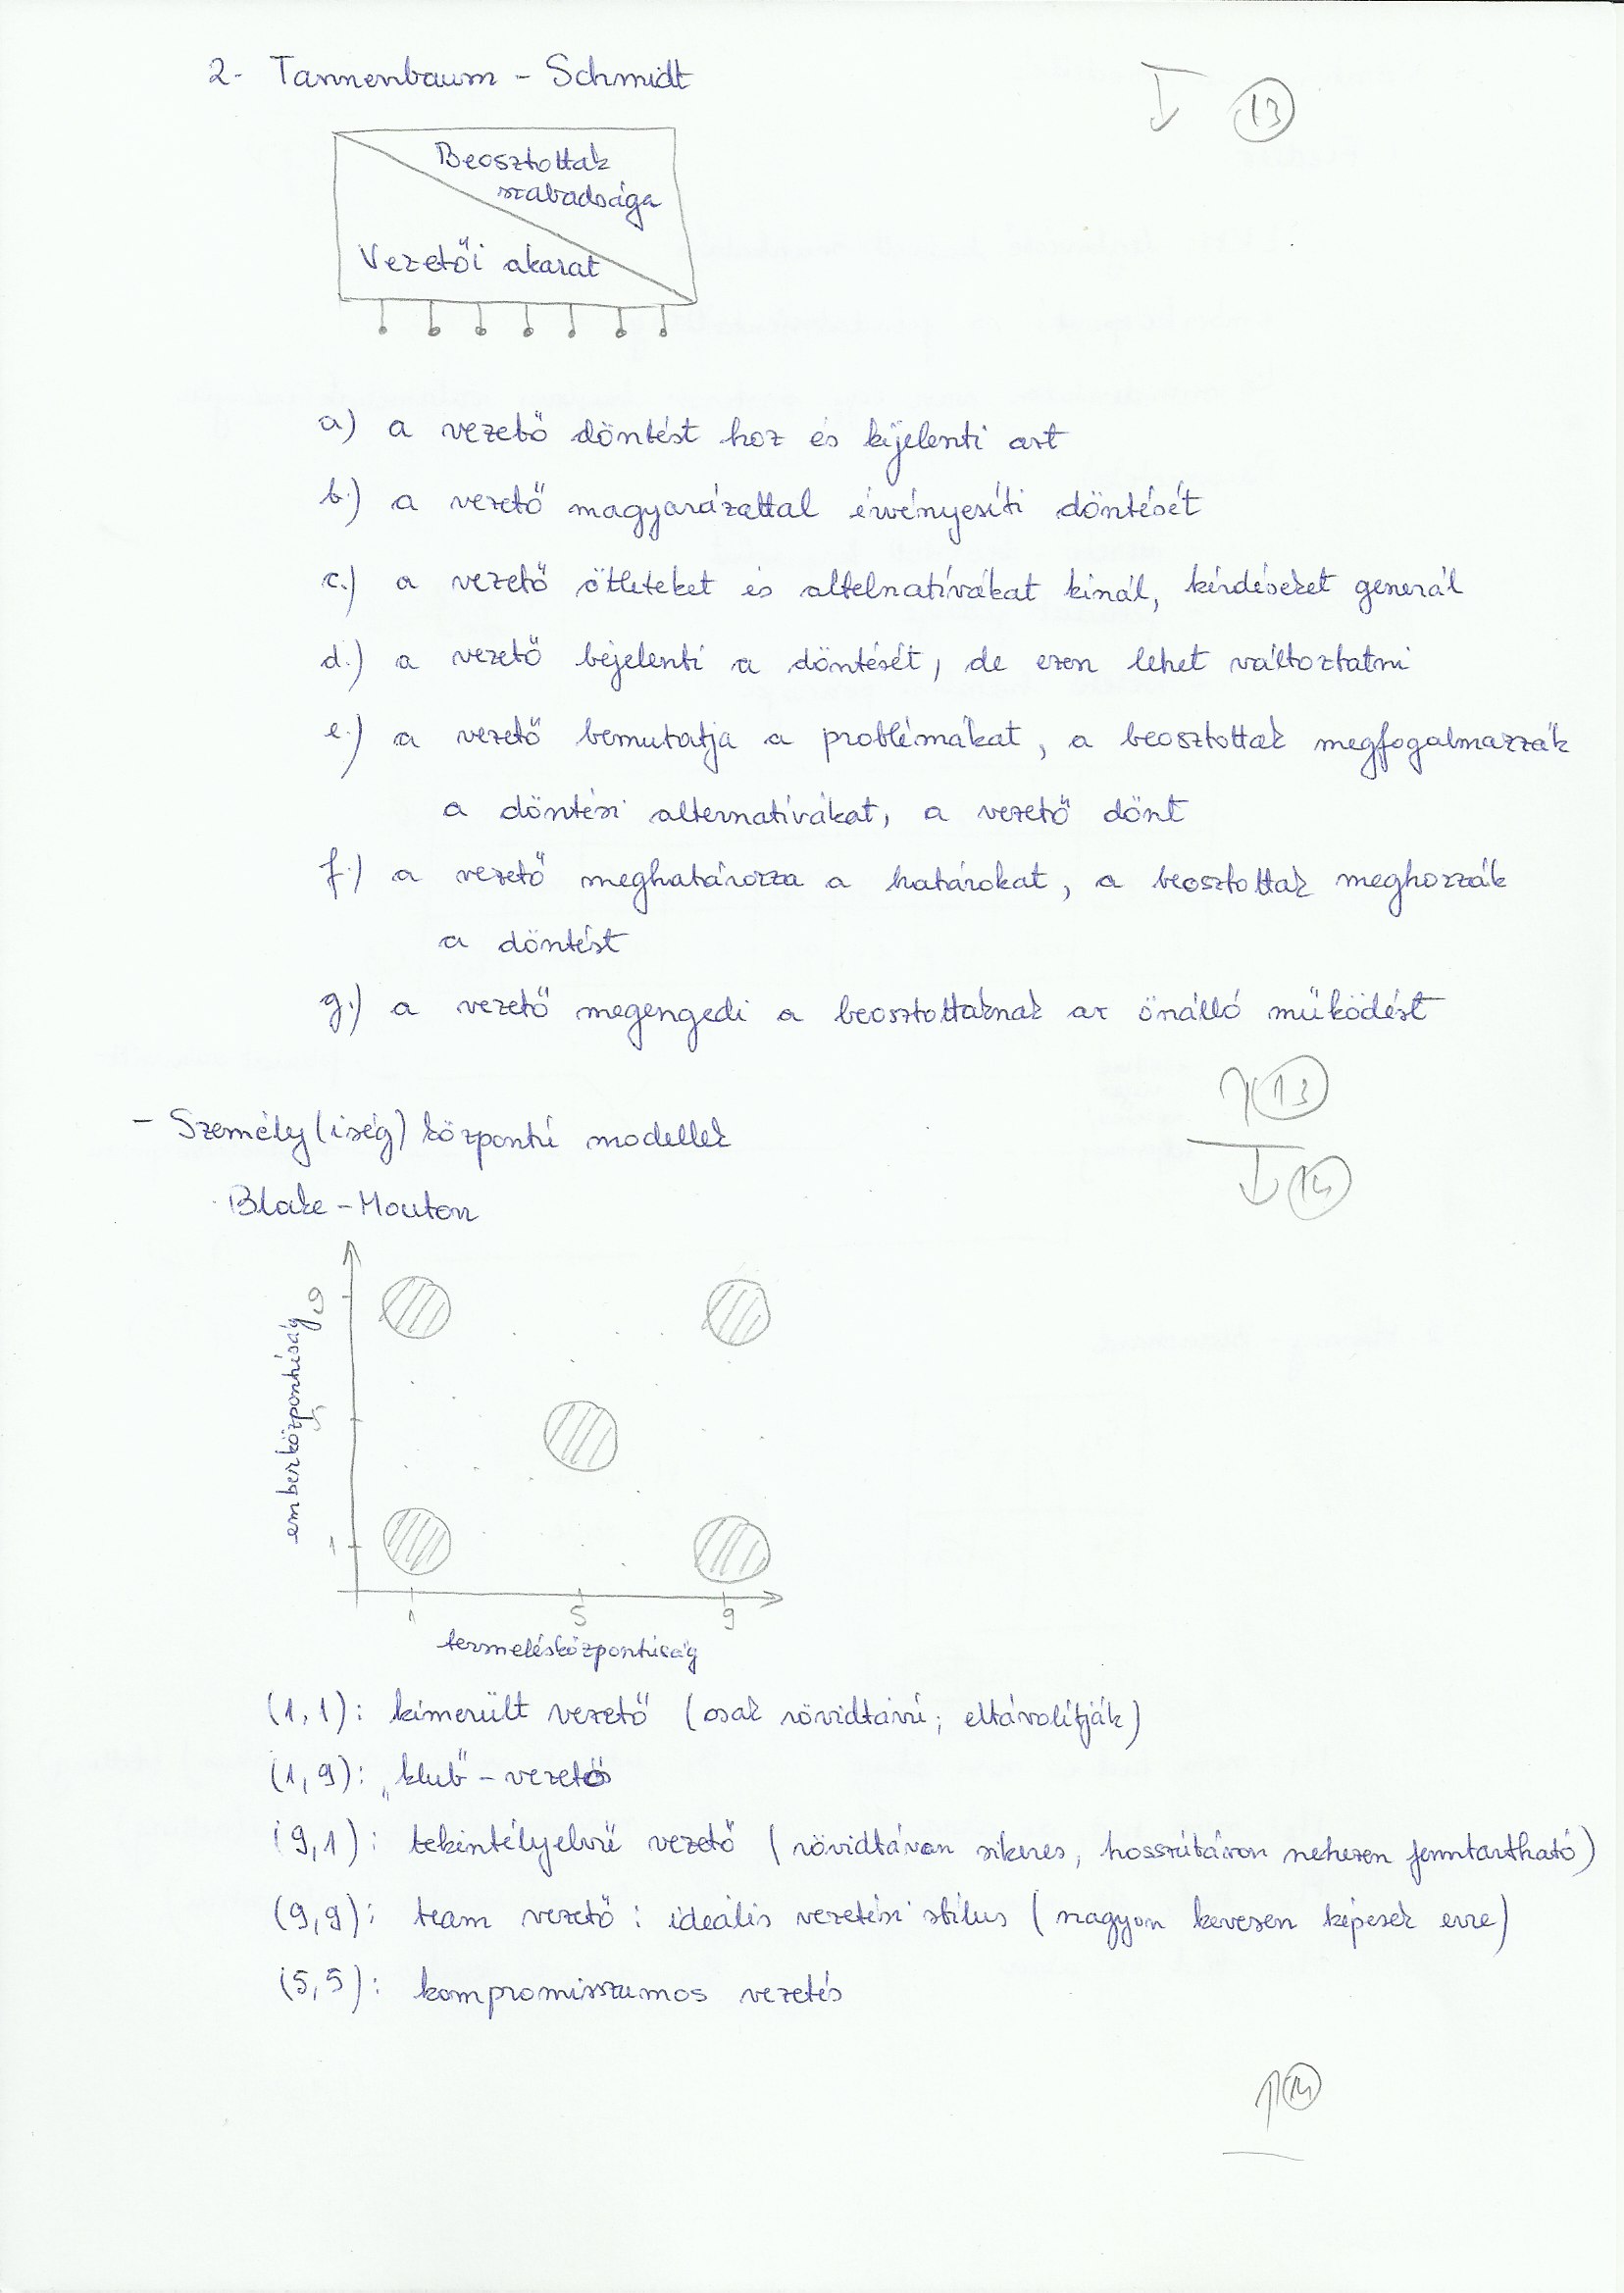 2- Tannenbaum - Schmidt
13
Beosztottak
szabadsága
Vezetői akarat
a) a vezető döntést hoz és kijelenti azt
b.) a vezető magyarázattal érvényesíti döntését
c.) a vezető ötleteket és altelnatívákat kínál, kérdéseket generál
d.) a vezető bejelenti a döntését, de ezen lehet változtatni
e.) a vezető bemutatja a problémákat, a beosztottak megfogalmazzák
a döntési alternatívákat, a vezető dönt
f.) a vezető meghatározza a határokat, a beosztottak meghozzák
a döntést
g.) a vezető megengedi a beosztottaknak az önálló működést
13
- Személy(iség) központú modellek
14
Blake - Mouton
9
emberközpontúság
5
1
1 5 9
termelésközpontúság
(1,1): kimerült vezető (csak rövidtávú; eltávolítják)
(1,9): „klub"-vezető
(9,1): tekintélyelvű vezető (rövidtávon sikeres, hosszútávon nehezen fenntartható)
(9,9): team vezető: ideális vezetési stílus (nagyon kevesen képesek erre)
(5,5): kompromisszumos vezetés
14